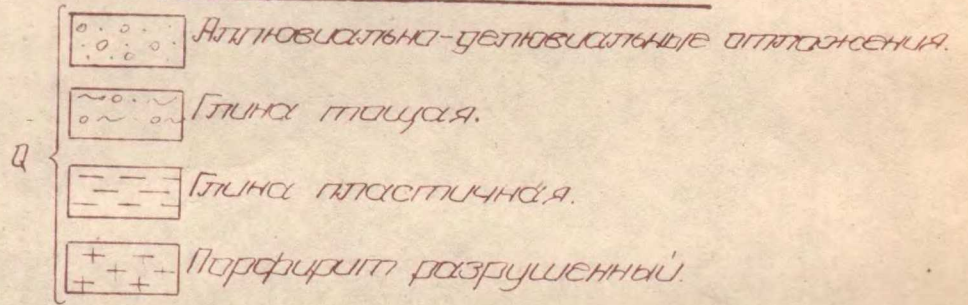 Аллювиально-делювиальные отложения.
Глина тощая.
Q
Глина пластичная.
Порфирит разрушенный.